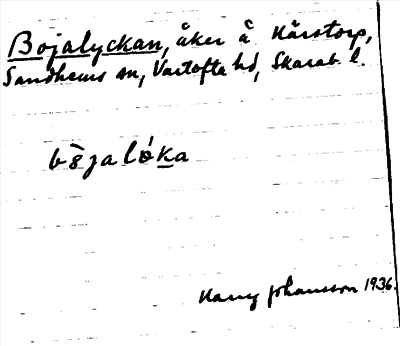 Bojalyckan, åker å Kårstorp,
Sandhems sn, Vartofta hd, Skarab. l.
bòjalóka
Harry Johansson 1936.